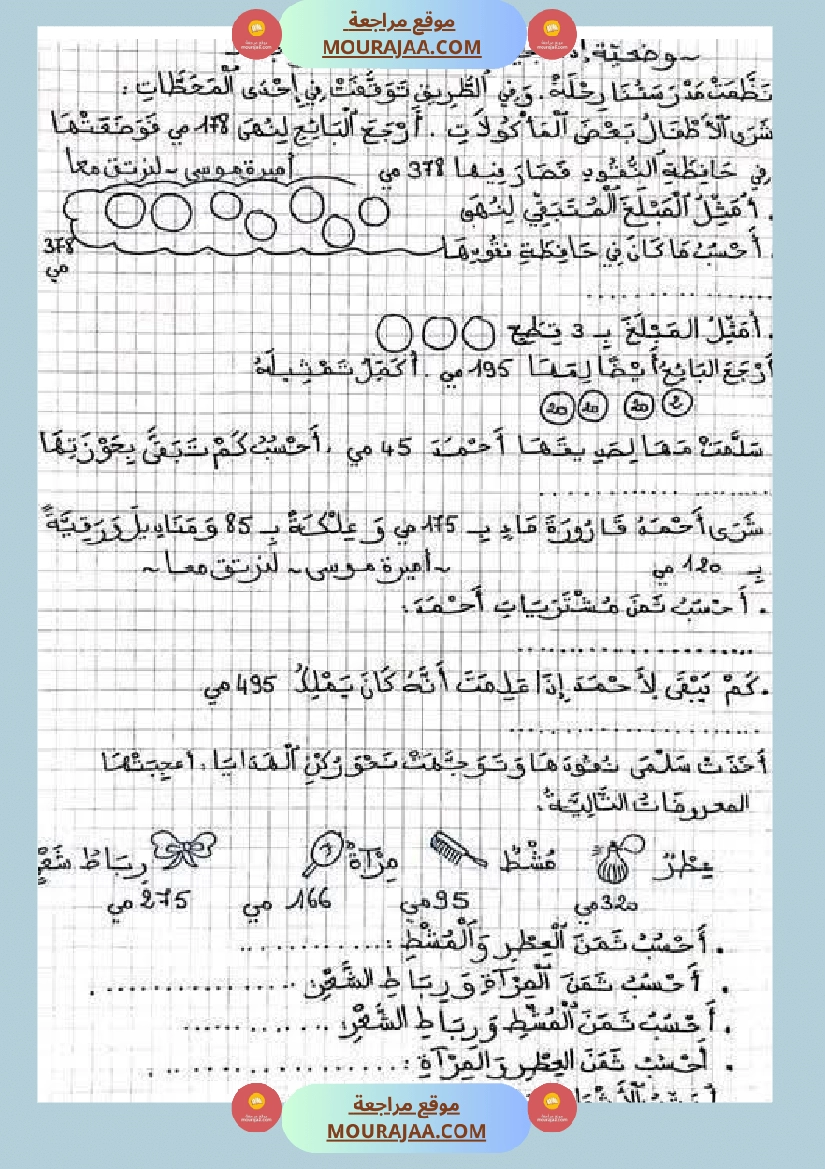 موقع مراجعة
MOURAJAA.COM
نَظَّمَتْ مَدْرَسَتُنَا رِحْلَةً. وَفِي الطَّرِيقِ تَوَقَّفَتْ فِي إِحْدَى الْمَحَطَّاتِ :
شَرَى الْأَطْفَالُ بَعْضَ الْمَأْكُولَاتِ. أَرْجَعَ الْبَائِعُ لِنُهَى 178 مي فَوَضَعَتْهَا
فِي حَافِظَةِ النُّقُودِ فَصَارَ فِيهَا 378 مي
أميرة موسى ~ لنرتق معا
. أُمَثِّلُ الْمَبْلَغَ الْمُتَبَقِّي لِنُهَى
. أَحْسُبُ مَا كَانَ فِي حَافِظَةِ نُقُودِهَا
378
مي
. أُمَثِّلُ المَبْلَغَ بِـ 3 قِطَعٍ
أَرْجَعَ البَائِعُ أَيْضًا لِمَهَا 195 مي . أُكْمِلُ تَمْثِيلَهُ
20 20 20 2
سَلَّمَتْ مَهَا لِصَدِيقِهَا أَحْمَدَ 45 مي . أَحْسُبُ كَمْ تَبَقَّى بِحَوْزَتِهَا
شَرَى أَحْمَدُ قَارُورَةَ مَاءٍ بِـ 175 مي وَ عِلْكَةً بِـ 85 وَ مَنَادِيلَ وَرَقِيَّةً
بِـ 120 مي
~ أميرة موسى ~ لنرتق معا ~
. أَحْسُبُ ثَمَنَ مُشْتَرَيَاتِ أَحْمَدَ:
. كَمْ يَبْقَى لِأَحْمَدَ إِذَا عَلِمْتَ أَنَّهُ كَانَ يَمْلِكُ 495 مي
أَخَذَتْ سَلْمَى نُقُودَهَا وَتَوَجَّهَتْ نَحْوَ رُكْنِ الْهَدَايَا. أعجبَتْهَا
المعروضَاتُ التَّالِيَةُ:
عِطْرٌ مُشْطٌ مِرْآةٌ رِبَاطُ شَعْرٍ
320مي 95مي 166 مي 275 مي
. أَحْسُبُ ثَمَنَ الْعِطْرِ وَالْمُشْطِ :
. أَحْسُبُ ثَمَنَ الْمِرْآةِ وَ رِبَاطِ الشَّعْرِ
. أَحْسُبُ ثَمَنَ الْمُشْطِ وَ رِبَاطِ الشَّعْرِ:
. أَحْسُبُ ثَمَنَ العِطْرِ وَ المِرْآةِ :
موقع مراجعة
MOURAJAA.COM